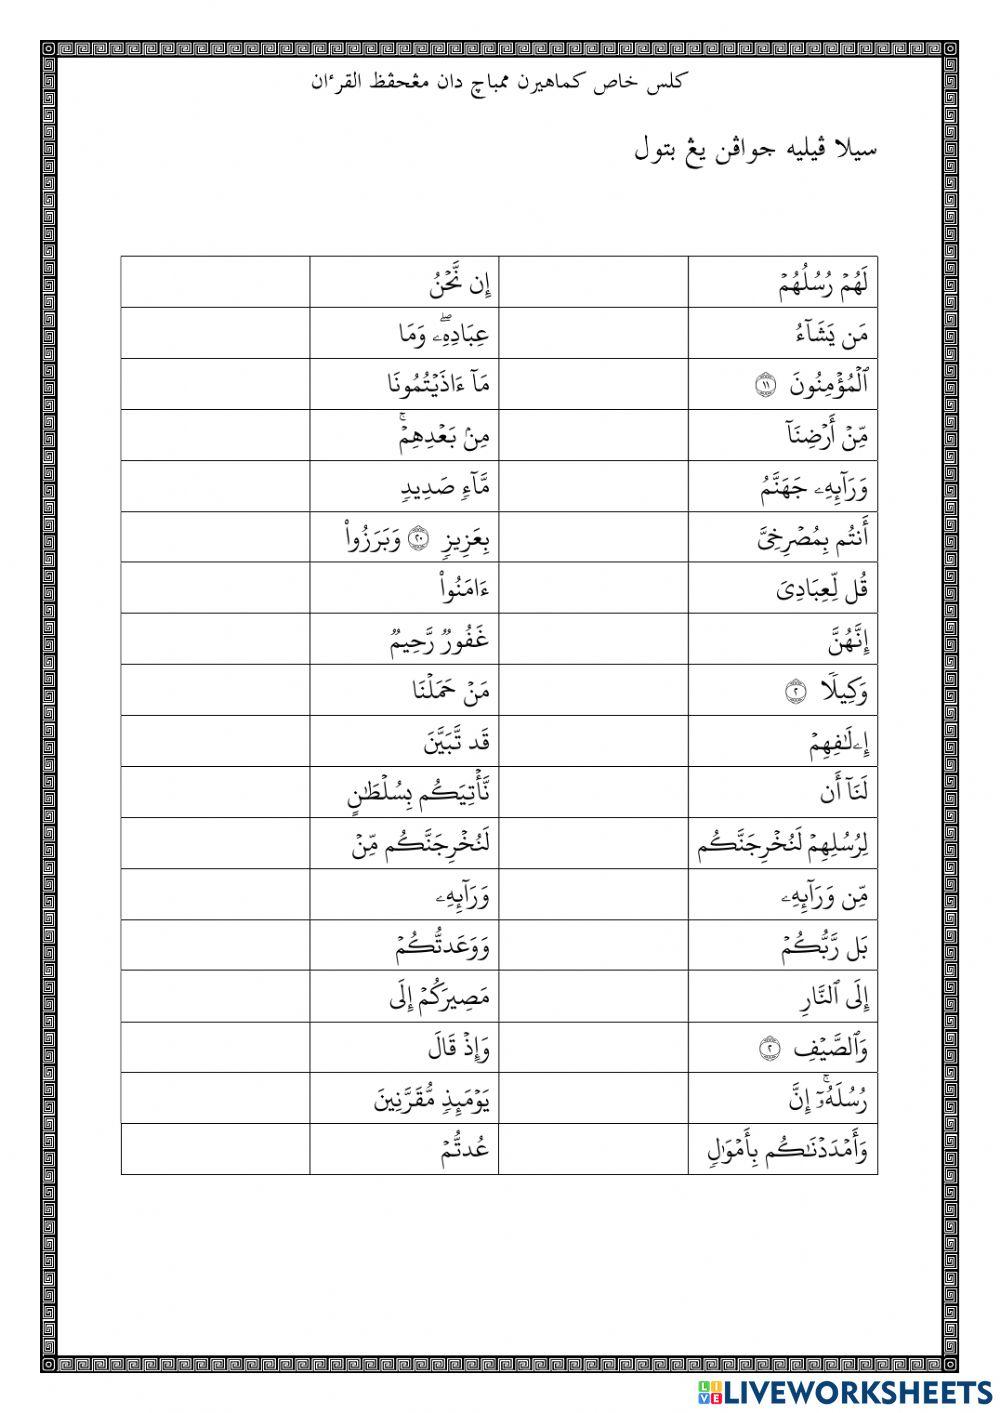 كلس خاص كماهيرن ممباچ دان مڠحفظ القرءان
سيلا ڤيليه جواڤن يڠ بتول
لَهُمۡ رُسُلُهُمۡ إِن نَّحۡنُ
مَن يَشَآءُ عِبَادِهِۦۖ وَمَا
ٱلۡمُؤۡمِنُونَ ١١ مَآ ءَاذَيۡتُمُونَا
مِّنۡ أَرۡضِنَآ مِنۢ بَعۡدِهِمۡۚ
وَرَآئِهِۦ جَهَنَّمُ مَّآءٖ صَدِيدٖ
أَنتُم بِمُصۡرِخِيَّ بِعَزِيزٖ ٢٠ وَبَرَزُواْ
قُل لِّعِبَادِيَ ءَامَنُواْ
إِنَّهُنَّ غَفُورٞ رَّحِيمٞ
وَكِيلٗا ٢ مَنۡ حَمَلۡنَا
إِۦلَٰفِهِمۡ قَد تَّبَيَّنَ
لَنَآ أَن نَّأۡتِيَكُم بِسُلۡطَٰنٍ
لِرُسُلِهِمۡ لَنُخۡرِجَنَّكُم لَنُخۡرِجَنَّكُم مِّنۡ
مِّن وَرَآئِهِۦ وَرَآئِهِۦ
بَل رَّبُّكُمۡ وَوَعَدتُّكُمۡ
إِلَى ٱلنَّارِ مَصِيرَكُمۡ إِلَى
وَٱلصَّيۡفِ ٢ وَإِذۡ قَالَ
رُسُلَهُۥٓۚ إِنَّ يَوۡمَئِذٖ مُّقَرَّنِينَ
وَأَمۡدَدۡنَٰكُم بِأَمۡوَٰلٖ عُدتُّمۡ
LIVEWORKSHEETS